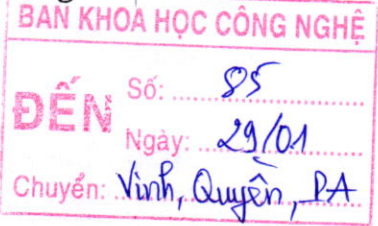 BAN KHOA HỌC CÔNG NGHỆ
ĐẾN
Số: 85
Ngày: 29/01
Chuyển: Vinh, Quyên, PA